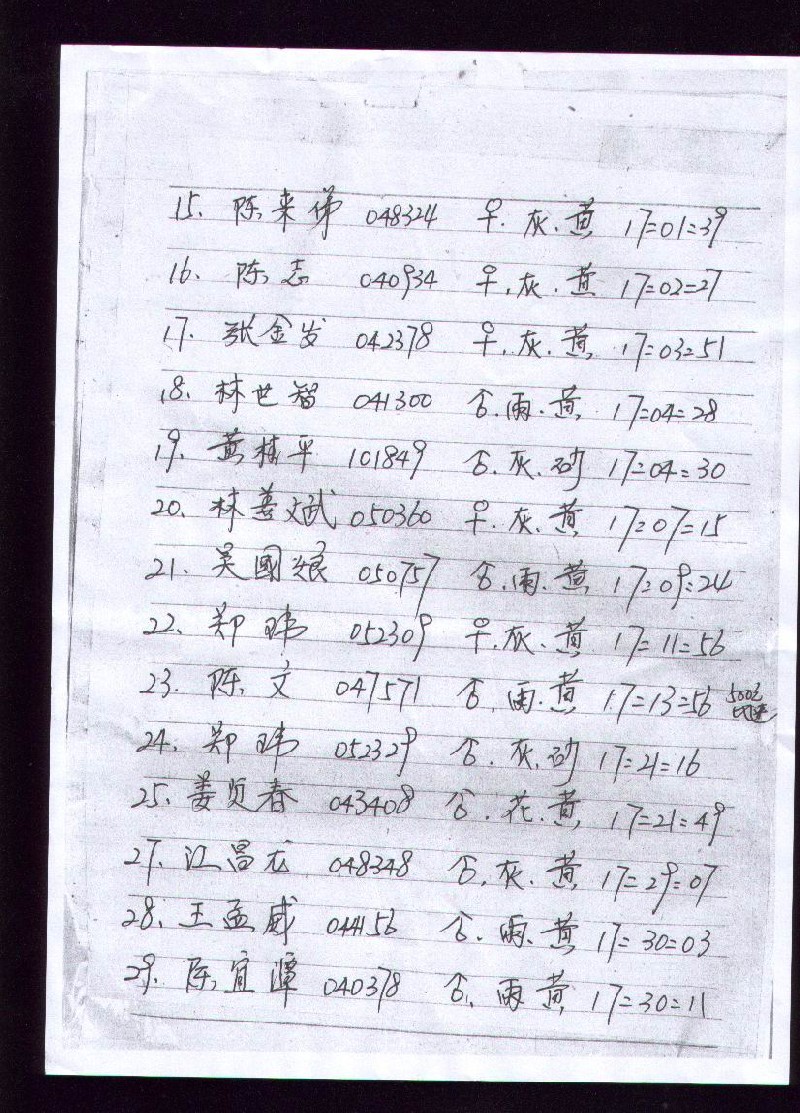 15. 陈来俤 048324 ♀.灰.黄 17=01=39
16. 陈志 040934 ♀.灰.黄 17=02=27
17. 张金发 042378 ♀.灰.黄 17=03=51
18. 林世智 041300 合.雨.黄 17=04=28
19. 黄桂平 101849 合.灰.砂 17=04=30
20. 林善斌 050360 ♀.灰.黄 17=07=15
21. 吴國 050757 合.雨.黄 17=09=24
22. 郑玮 052309 ♀.灰.黄 17=11=56
23. 陈文 047571 合.雨.黄 17=13=56
24. 郑玮 052329 合.灰.砂 17=21=16
25. 姜贞春 043408 合.花.黄 17=21=49
27. 江昌龙 048348 合.灰.黄 17=29=07
28. 王孟威 044156 合.雨.黄 17=30=03
29. 陈宜潭 040378 合.雨黄 17=30=11